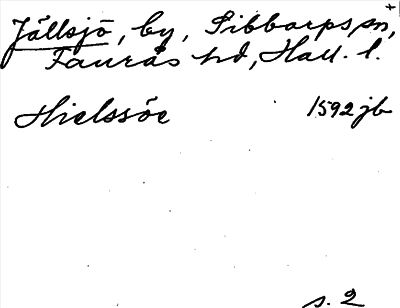 Jällsjö, by, Sibbarps sn,
Faurås hd, Hall. l.
Hielssöe 1592 jb
s. 2